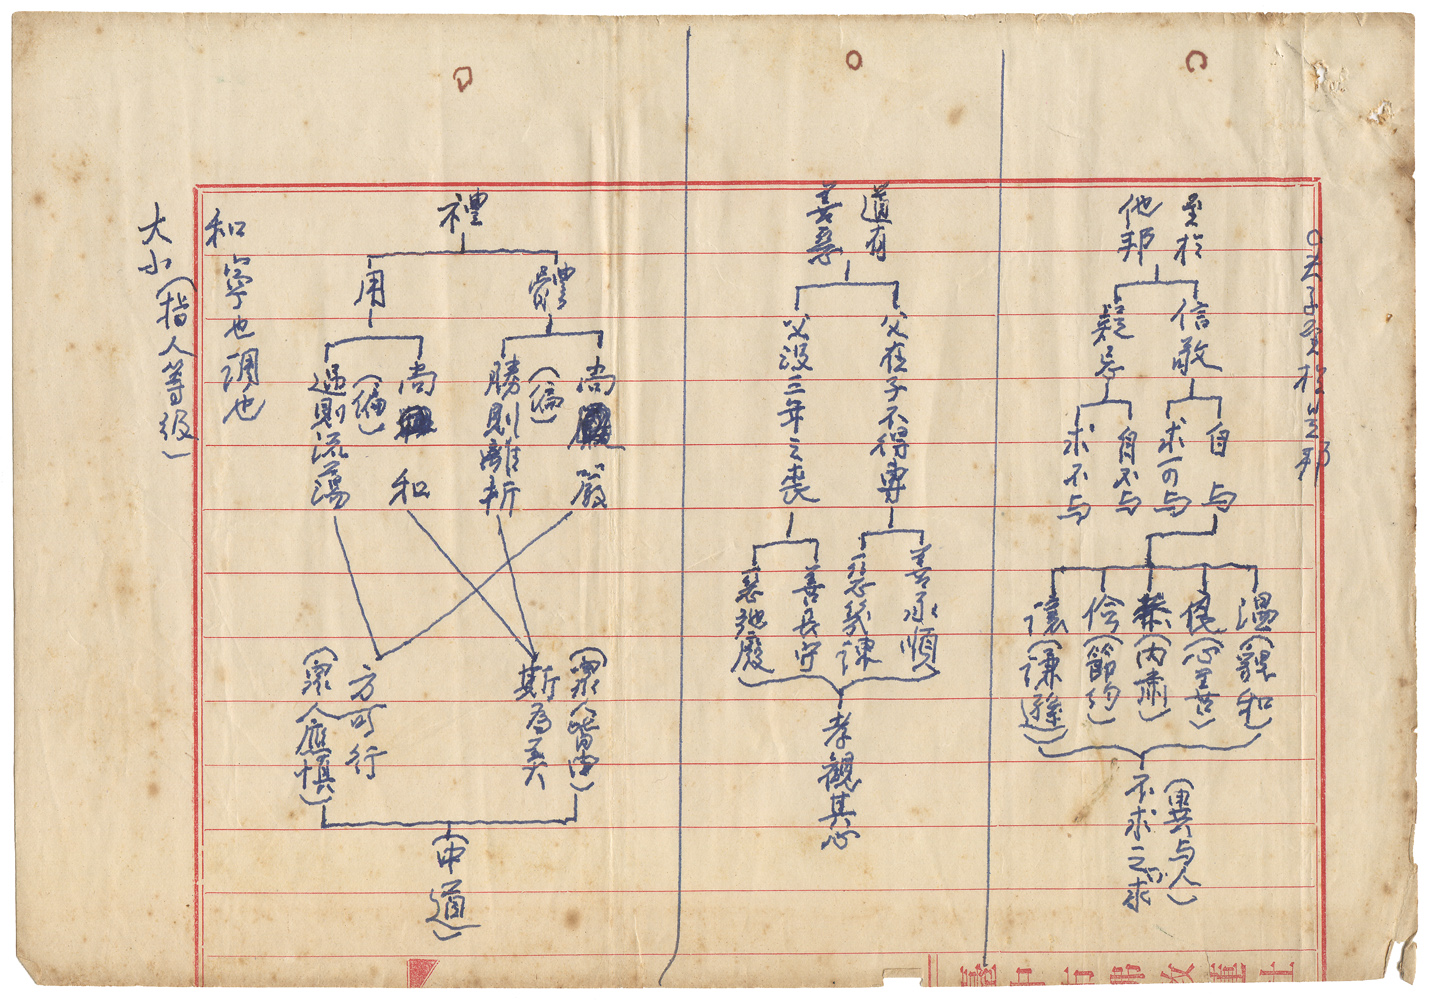 ○夫子至於是邦
至於
他邦
信敬
疑忌
自与
求可与
自不与
求不与
溫(親和)
良(心至苦)
恭(內肅)
儉(節約)
讓(謙遜)
(異与人)
不求之求
道有
善惡
父在子不得專
父没三年之喪
善承順
惡幾諫
善長守
惡弛廢
孝觀其心
禮
體
用
尚嚴
(偏)
勝則離析
尚和
(偏)
過則流蕩
(眾人皆由)
斯為美
方可行
(眾人應慎)
(中道)
和寧也調也
大小(指人等級)